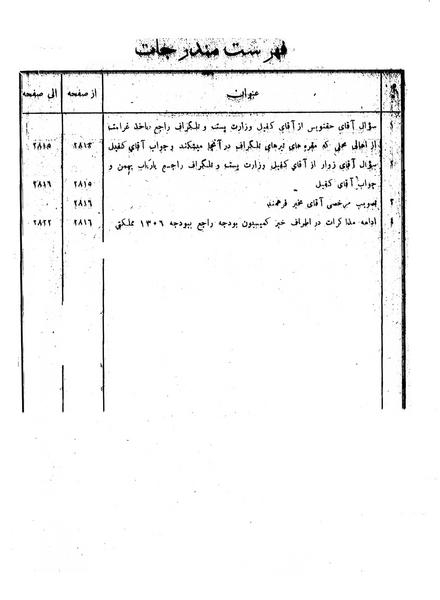 فهرست مندرجات
عنوان از صفحه الی صفحه
۱ سؤال آقای حقنویس از آقای کفیل وزارت پست و تلگراف راجع باخذ غرامت
از اهالی محلی که مقره های تیرهای تلگراف در آنجا میشکند و جواب آقای کفیل ۲۸۱۴ ۲۸۱۵
۲ سؤال آقای زوار از آقای کفیل وزارت پست و تلگراف راجع بارباب بهمن و
جواب آقای کفیل ۲۸۱۵ ۲۸۱۶
۳ تصویب مرخصی آقای مخبر فرهمند ۲۸۱۶
۴ ادامه مذاکرات در اطراف خبر کمیسیون بودجه راجع ببودجه ۱۳۰۶ مملکتی ۲۸۱۶ ۲۸۲۲